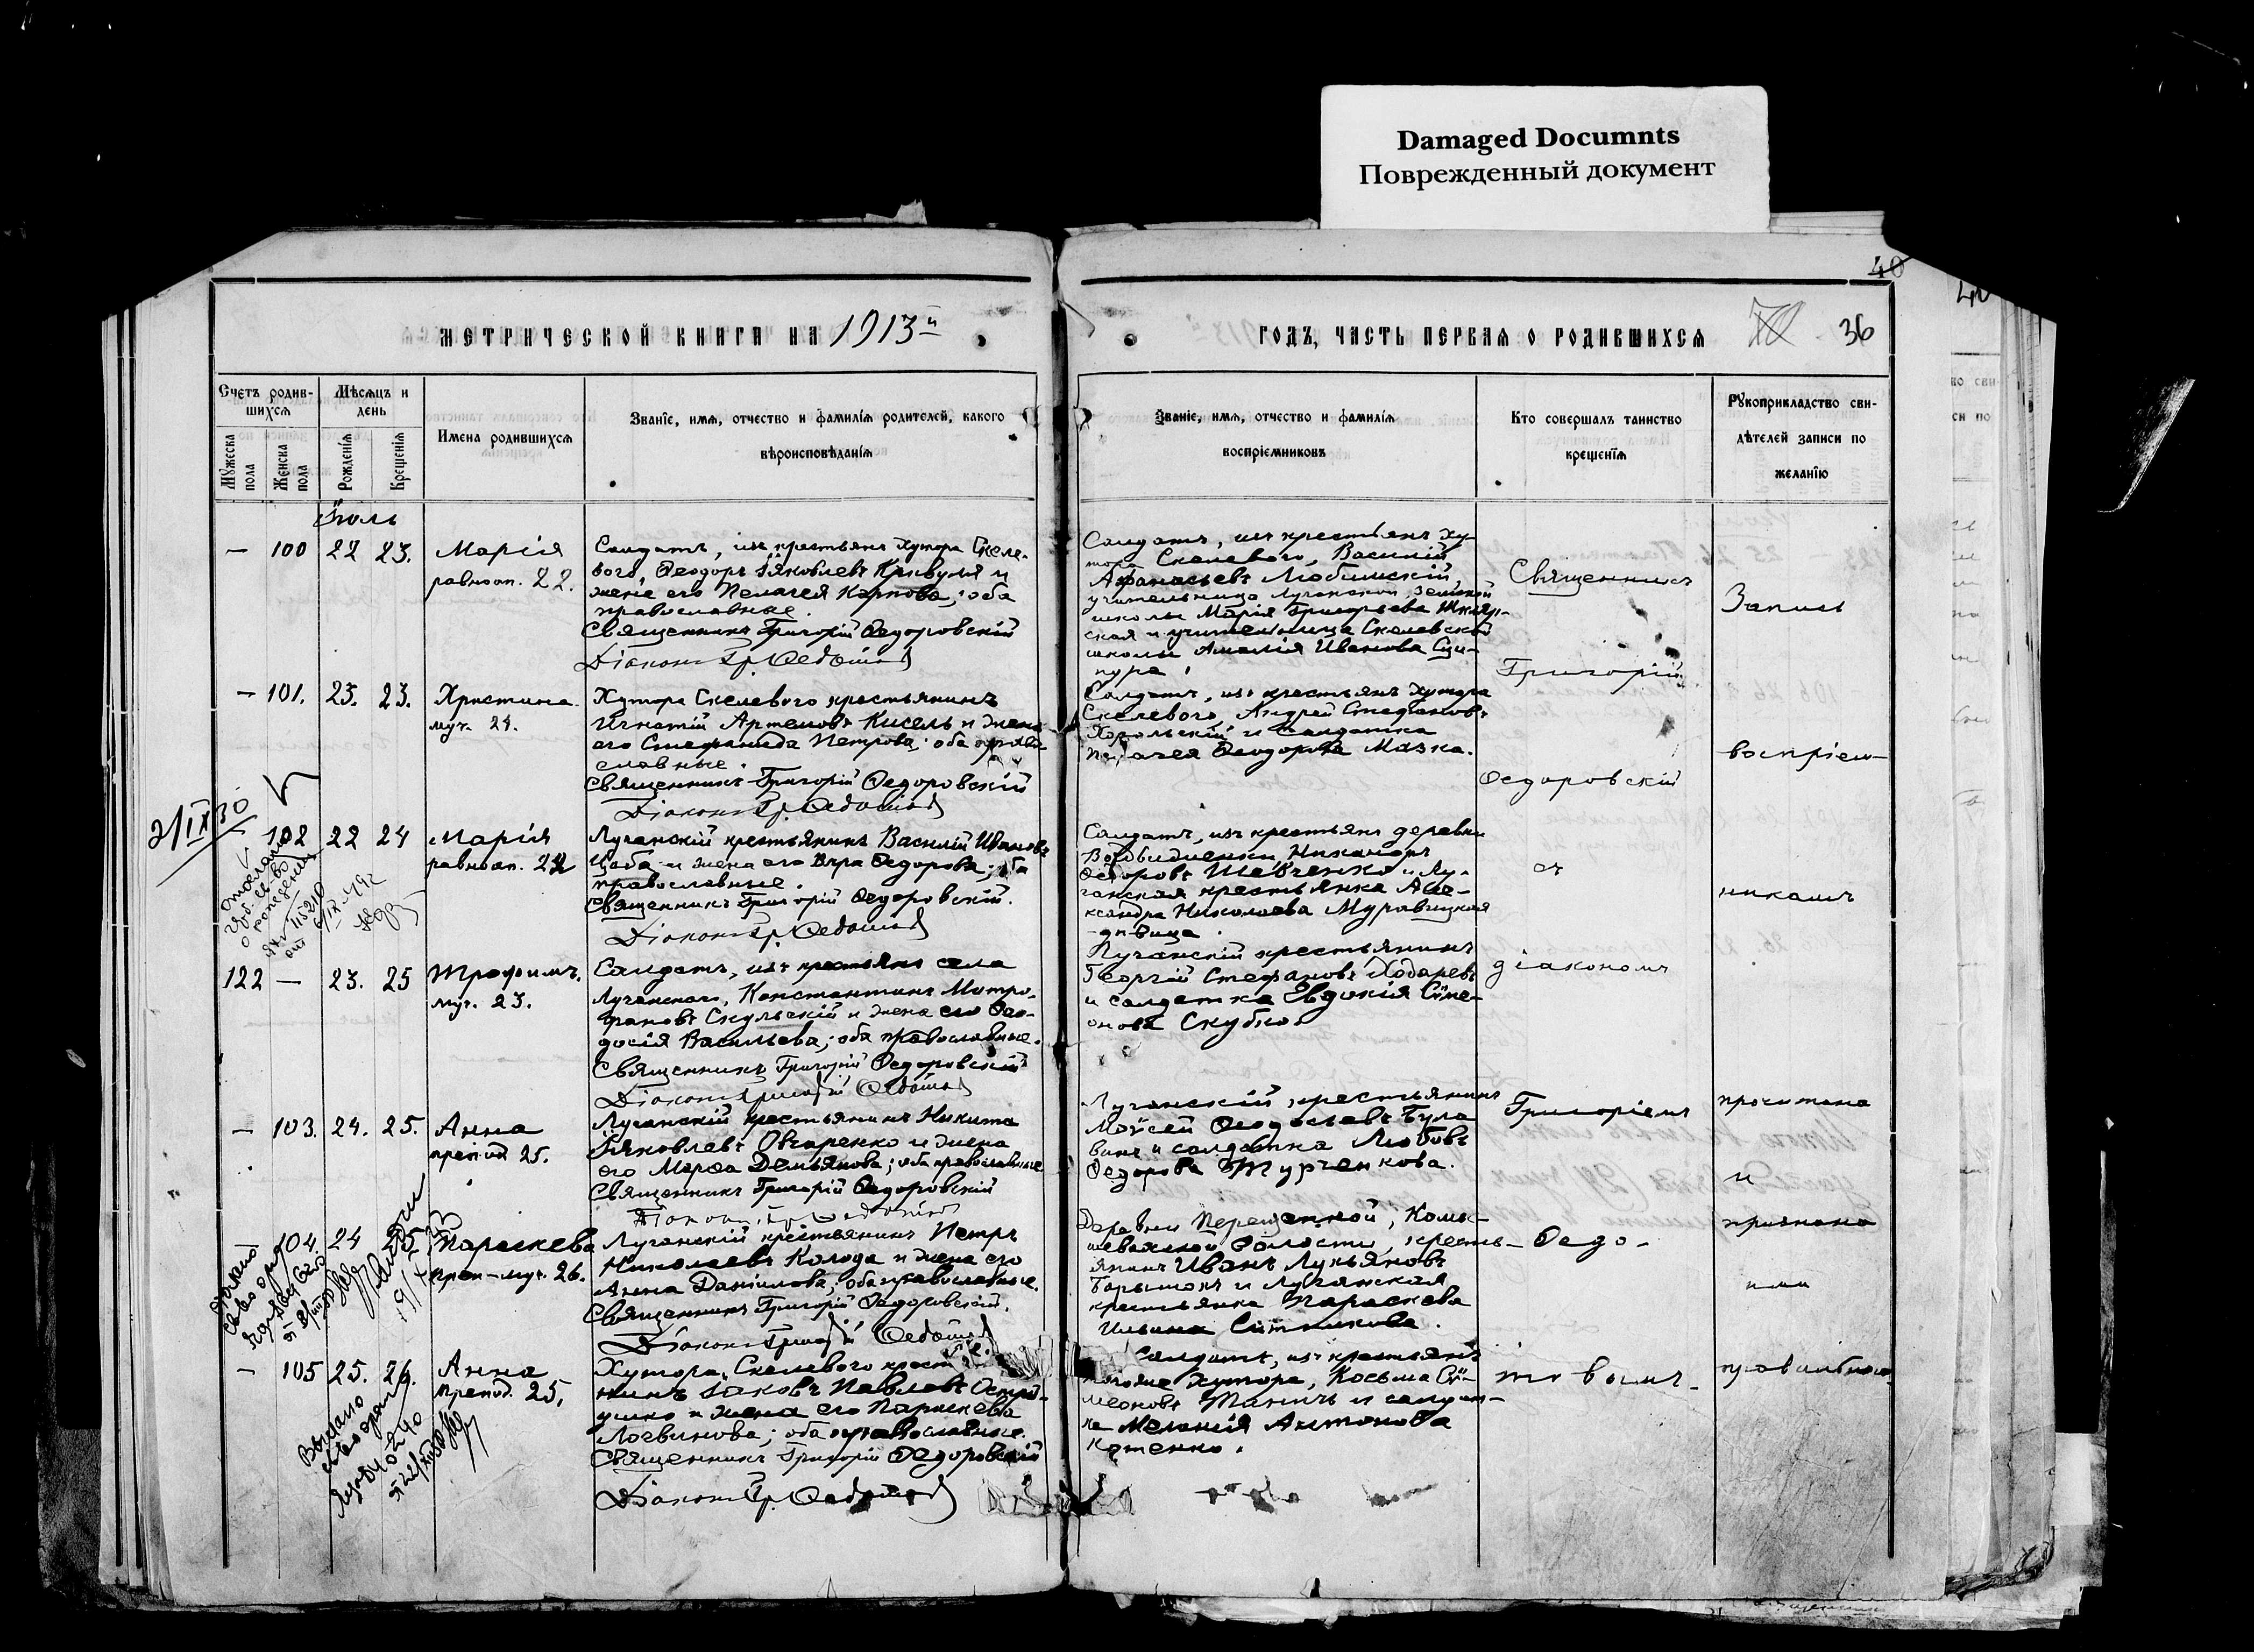 Damaged Documnts
Поврежденный документ
40
МЕТРИЧЕСКОЙ КНИГИ НА 1913й
ГОДЪ, ЧАСТЬ ПЕРВАЯ О РОДИВШИХСЯ
36
Счетъ родив-
шихся
Мужеска пола
Женска пола
Мѣсяцъ и
день
Рожденія
Крещенія
Имена родившихся
Званіе, имя, отчество и фамилія родителей, какого
вѣроисповѣданія
Званіе, имя, отчество и фамилія
воспріемниковъ
Кто совершалъ таинство
крещенія
Рукоприкладство сви-
дѣтелей записи по
желанію
Іюль
— 100 22 23.
Марія
равноап. 22.
Солдатъ, изъ крестьянъ хутора Скеле-
вого, Ѳеодоръ Іаковлевъ Кривуля и
жена его Пелагея Карпова; оба
православные.
Священникъ Григорій Ѳедоровскій
Діаконъ Гр. Ѳедотовъ
Солдатъ, изъ крестьянъ ху-
тора Скелевого, Василій
Аѳанасьевъ Любимскій,
учительница Лучанской земской
школы Марія Григорьева
ская и учительница Скелевской
школы Амалія Иванова Сци-
пура.
— 101. 23. 23.
Христина
муч. 24.
Хутора Скелевого крестьянинъ
Игнатій Артемовъ Кисель и жена
его Стефанида Петрова; оба право-
славные.
Священникъ Григорій Ѳедоровскій
Діаконъ Гр. Ѳедотовъ
Солдатъ, изъ крестьянъ хутора
Скелевого, Андрей Стефановъ
Хорольскій и солдатка
Пелагея Ѳеодорова Мазка.
2/IX 30
102 22 24
Марія
равноап. 22
Лучанскій крестьянинъ Василій Ивановъ
Цаба и жена его Вѣра Ѳедорова; оба
православные.
Священникъ Григорій Ѳедоровскій.
Діаконъ Гр. Ѳедотовъ
Солдатъ, изъ крестьянъ деревни
Никаноръ
Ѳедоровъ Шевченко и Лу-
чанская крестьянка Але-
ксандра Николаева Муравицкая
-дѣвица.
122 — 23. 25
Трофимъ.
муч. 23.
Солдатъ, изъ крестьянъ села
Лучанского, Константинъ Митро-
фановъ Скульскій и жена его Ѳео-
досія Васильева; оба православные.
Священникъ Григорій Ѳедоровскій
Діаконъ Григорій Ѳедотовъ
Лучанскій крестьянинъ
Георгій Стефановъ Ходаревъ
и солдатка Евдокія Симе-
онова Скубко.
— 103. 24. 25.
Анна
препод. 25.
Лучанскій крестьянинъ Никита
Іаковлевъ Овчаренко и жена
его Марѳа Демьянова; оба православные
Священникъ Григорій Ѳедоровскій
Діаконъ Гр. Ѳедотовъ
Лучанскій крестьянинъ
Моѵсей Ѳеодосьевъ Була-
винъ и солдатка Любовь
Ѳедорова Турченкова.
104. 24 25
Параскева
преп-муч. 26.
Лучанскій крестьянинъ Петръ
Николаевъ Колода и жена его
Анна Даніилова; оба православные.
Священникъ Григорій Ѳедоровскій.
Діаконъ Григорій Ѳедотовъ
Деревни Перещепной, Комы-
шеваской волости, кресть-
янинъ Иванъ Лукьяновъ
и Лучанская
крестьянка Параскева
Ильина Ситникова.
— 105 25. 26.
Анна
препод. 25,
Хутора Скелевого крестья-
нинъ Іаковъ Павловъ
и жена его Параскева
Логвинова; оба православные.
Священникъ Григорій Ѳедоровскій
Діаконъ Гр. Ѳедотовъ
Солдатъ, изъ крестьянъ
хутора, Косьма Си-
меоновъ и солдат-
ка Меланія Антонова
Котенко.
Священникъ
Григорій
Ѳедоровскій
съ
діакономъ
Григоріемъ
Ѳедо-
товымъ.
Запись
воспріем-
никамъ
прочитана
и
признана
ими
правильною.
Выдано